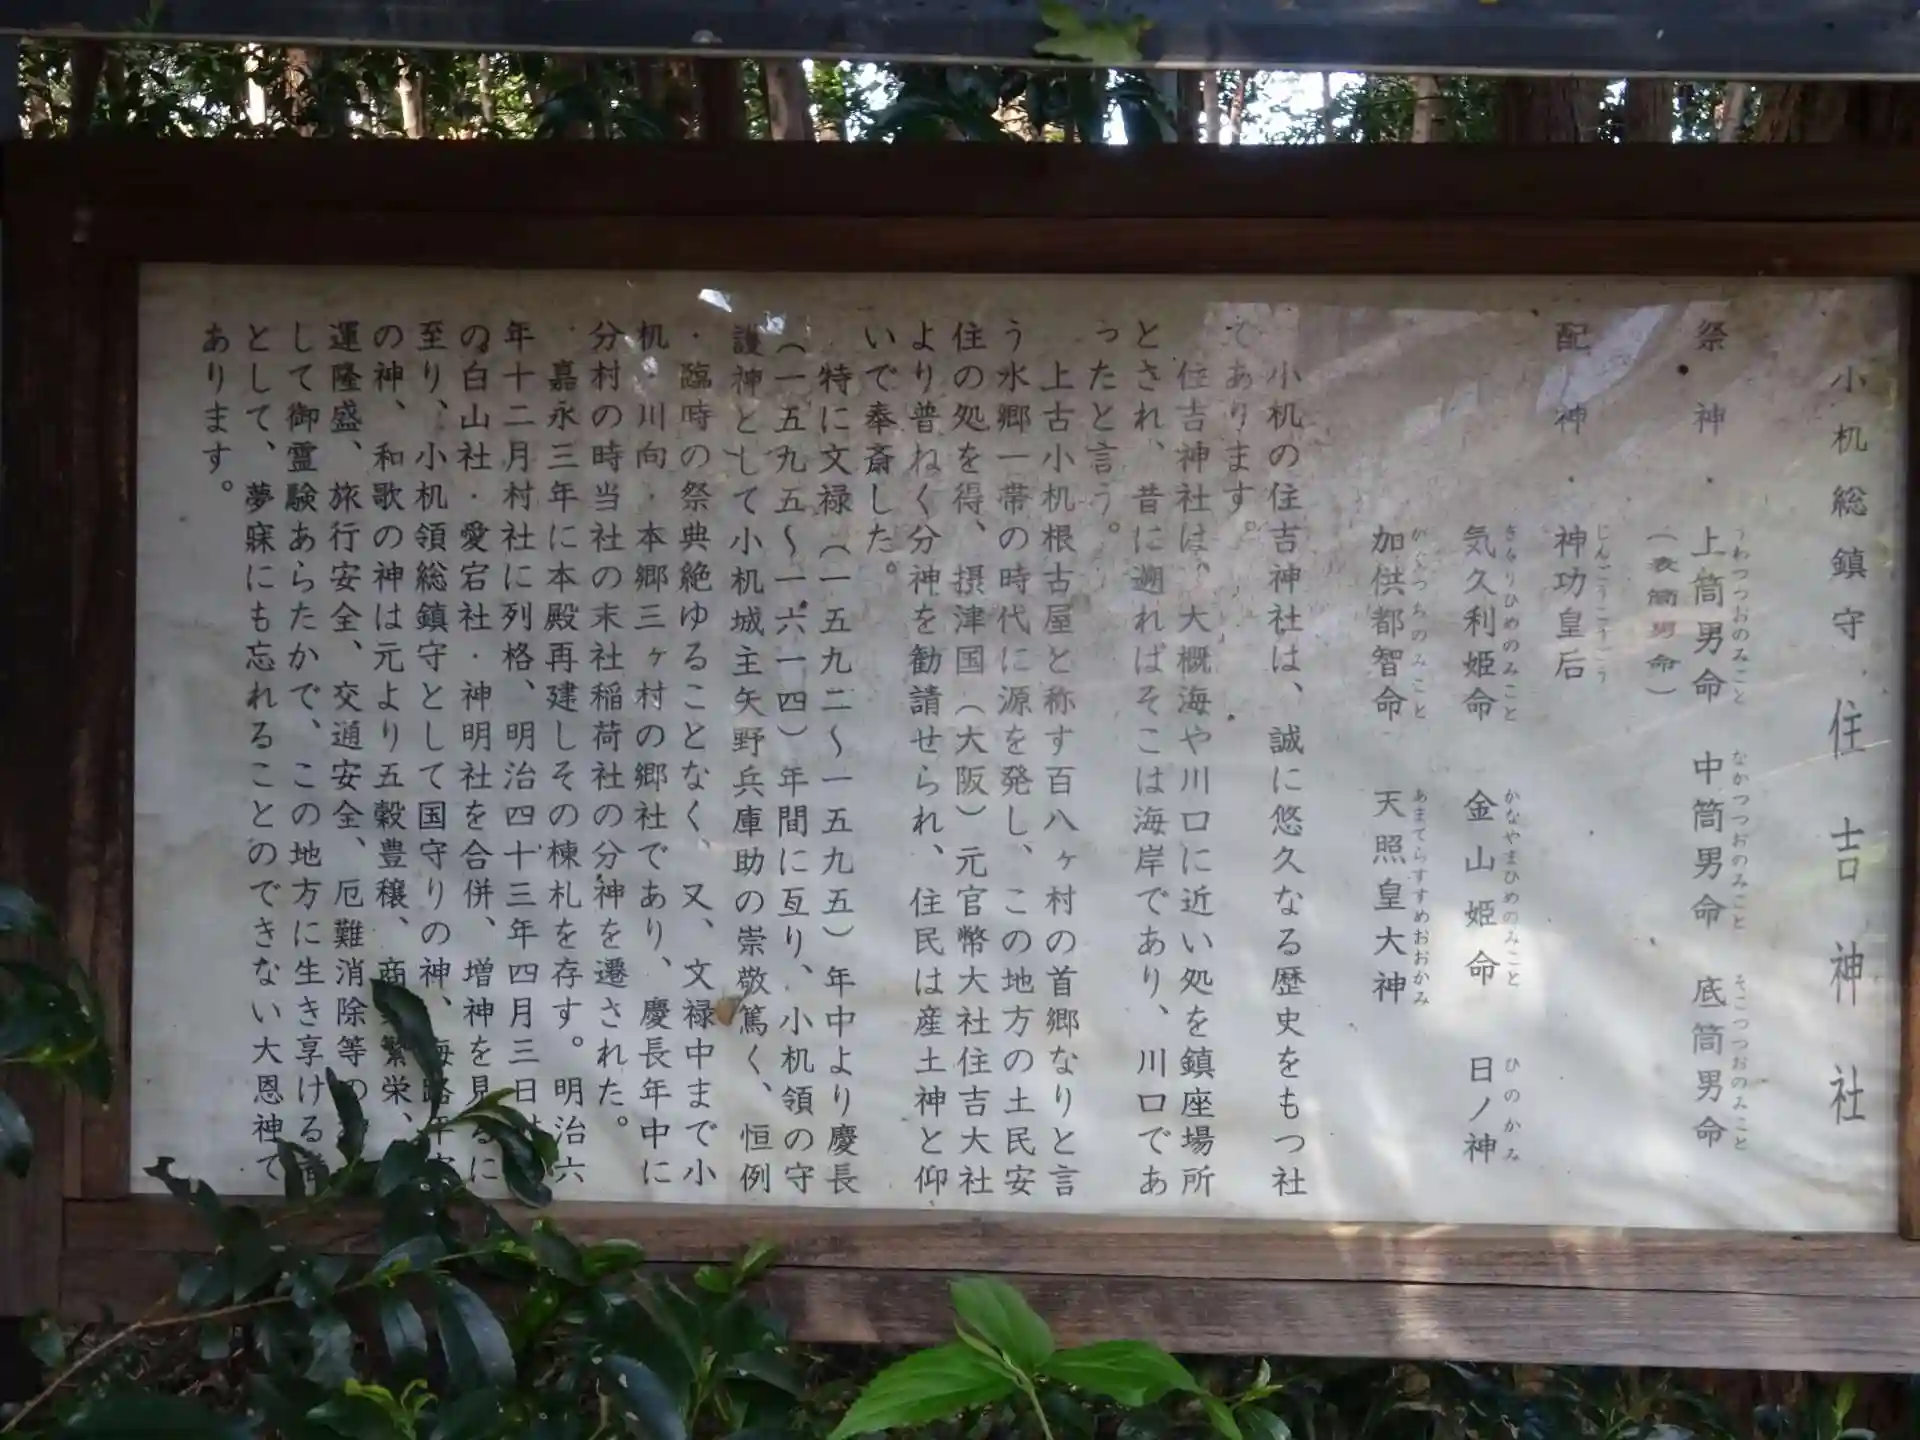 小机総鎮守 住吉神社
祭神・上筒男命 中筒男命 底筒男命
うわつつおのみこと なかつつおのみこと そこつつおのみこと
（表筒男命）
配神・神功皇后
じんごうこうごう
気久利姫命 金山姫命 日ノ神
きくりひめのみこと かなやまひめのみこと ひのかみ
加供都智命 天照皇大神
かぐつちのみこと あまてらすすめおおかみ
小机の住吉神社は、誠に悠久なる歴史をもつ社
であります。
住吉神社は、大概海や川口に近い処を鎮座場所
とされ、昔に遡ればそこは海岸であり、川口であ
ったと言う。
上古小机根古屋と称す百八ヶ村の首郷なりと言
う水郷一帯の時代に源を発し、この地方の土民安
住の処を得、摂津国（大阪）元官幣大社住吉大社
より普ねく分神を勧請せられ、住民は産土神と仰
いで奉斎した。
特に文禄（一五九二〜一五九五）年中より慶長
（一五九五〜一六一四）年間に亙り、小机領の守
護神として小机城主矢野兵庫助の崇敬篤く、恒例
・臨時の祭典絶ゆることなく、又、文禄中まで小
机・川向・本郷三ヶ村の郷社であり、慶長年中に
分村の時当社の末社稲荷社の分神を遷された。
嘉永三年に本殿再建しその棟札を存す。明治六
年十二月村社に列格、明治四十三年四月三日
の白山社・愛宕社・神明社を合併、増神を見るに
至り、小机領総鎮守として国守りの神、海路平安
の神、和歌の神は元より五穀豊穣、商繁栄、
運隆盛、旅行安全、交通安全、厄難消除等の
して御霊験あらたかで、この地方に生き享ける者
として、夢寐にも忘れることのできない大恩神で
あります。